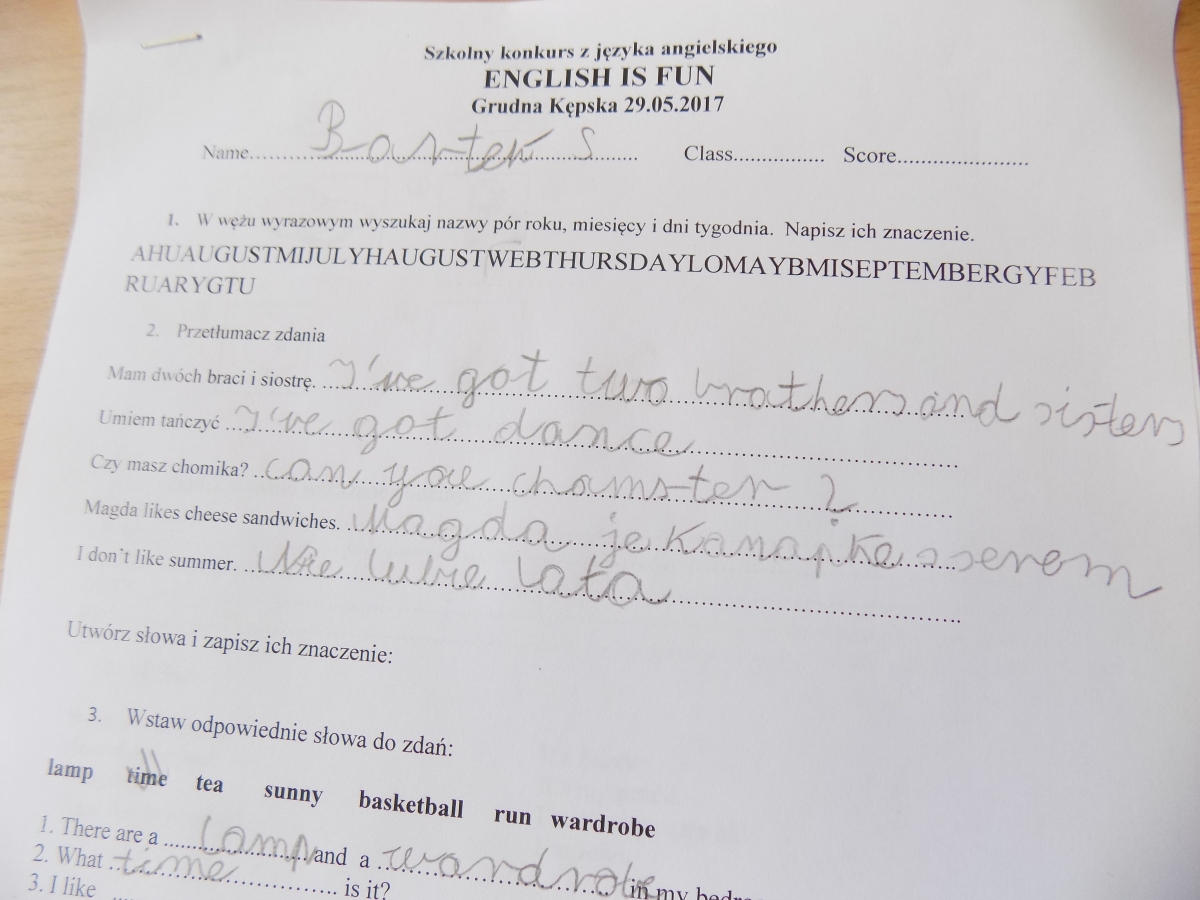 Szkolny konkurs z języka angielskiego
ENGLISH IS FUN
Grudna Kępska 29.05.2017
Name.......... Bartek S .......... Class................ Score......................
1. W wężu wyrazowym wyszukaj nazwy pór roku, miesięcy i dni tygodnia. Napisz ich znaczenie.
AHUAUGUSTMIJULYHAUGUSTWEBTHURSDAYLOMAYBMISEPTEMBERGYFEB
RUARYGTU
2. Przetłumacz zdania
Mam dwóch braci i siostrę. I've got two brathers and sisters
Umiem tańczyć I've got dance
Czy masz chomika? can you chamster ?
Magda likes cheese sandwiches. Magda je kanapke sserem
I don't like summer. Nie lubie lata
Utwórz słowa i zapisz ich znaczenie:
3. Wstaw odpowiednie słowa do zdań:
lamp time tea sunny basketball run wardrobe
1. There are a lamp and a wardrobe in my
2. What time is it?
3. I like